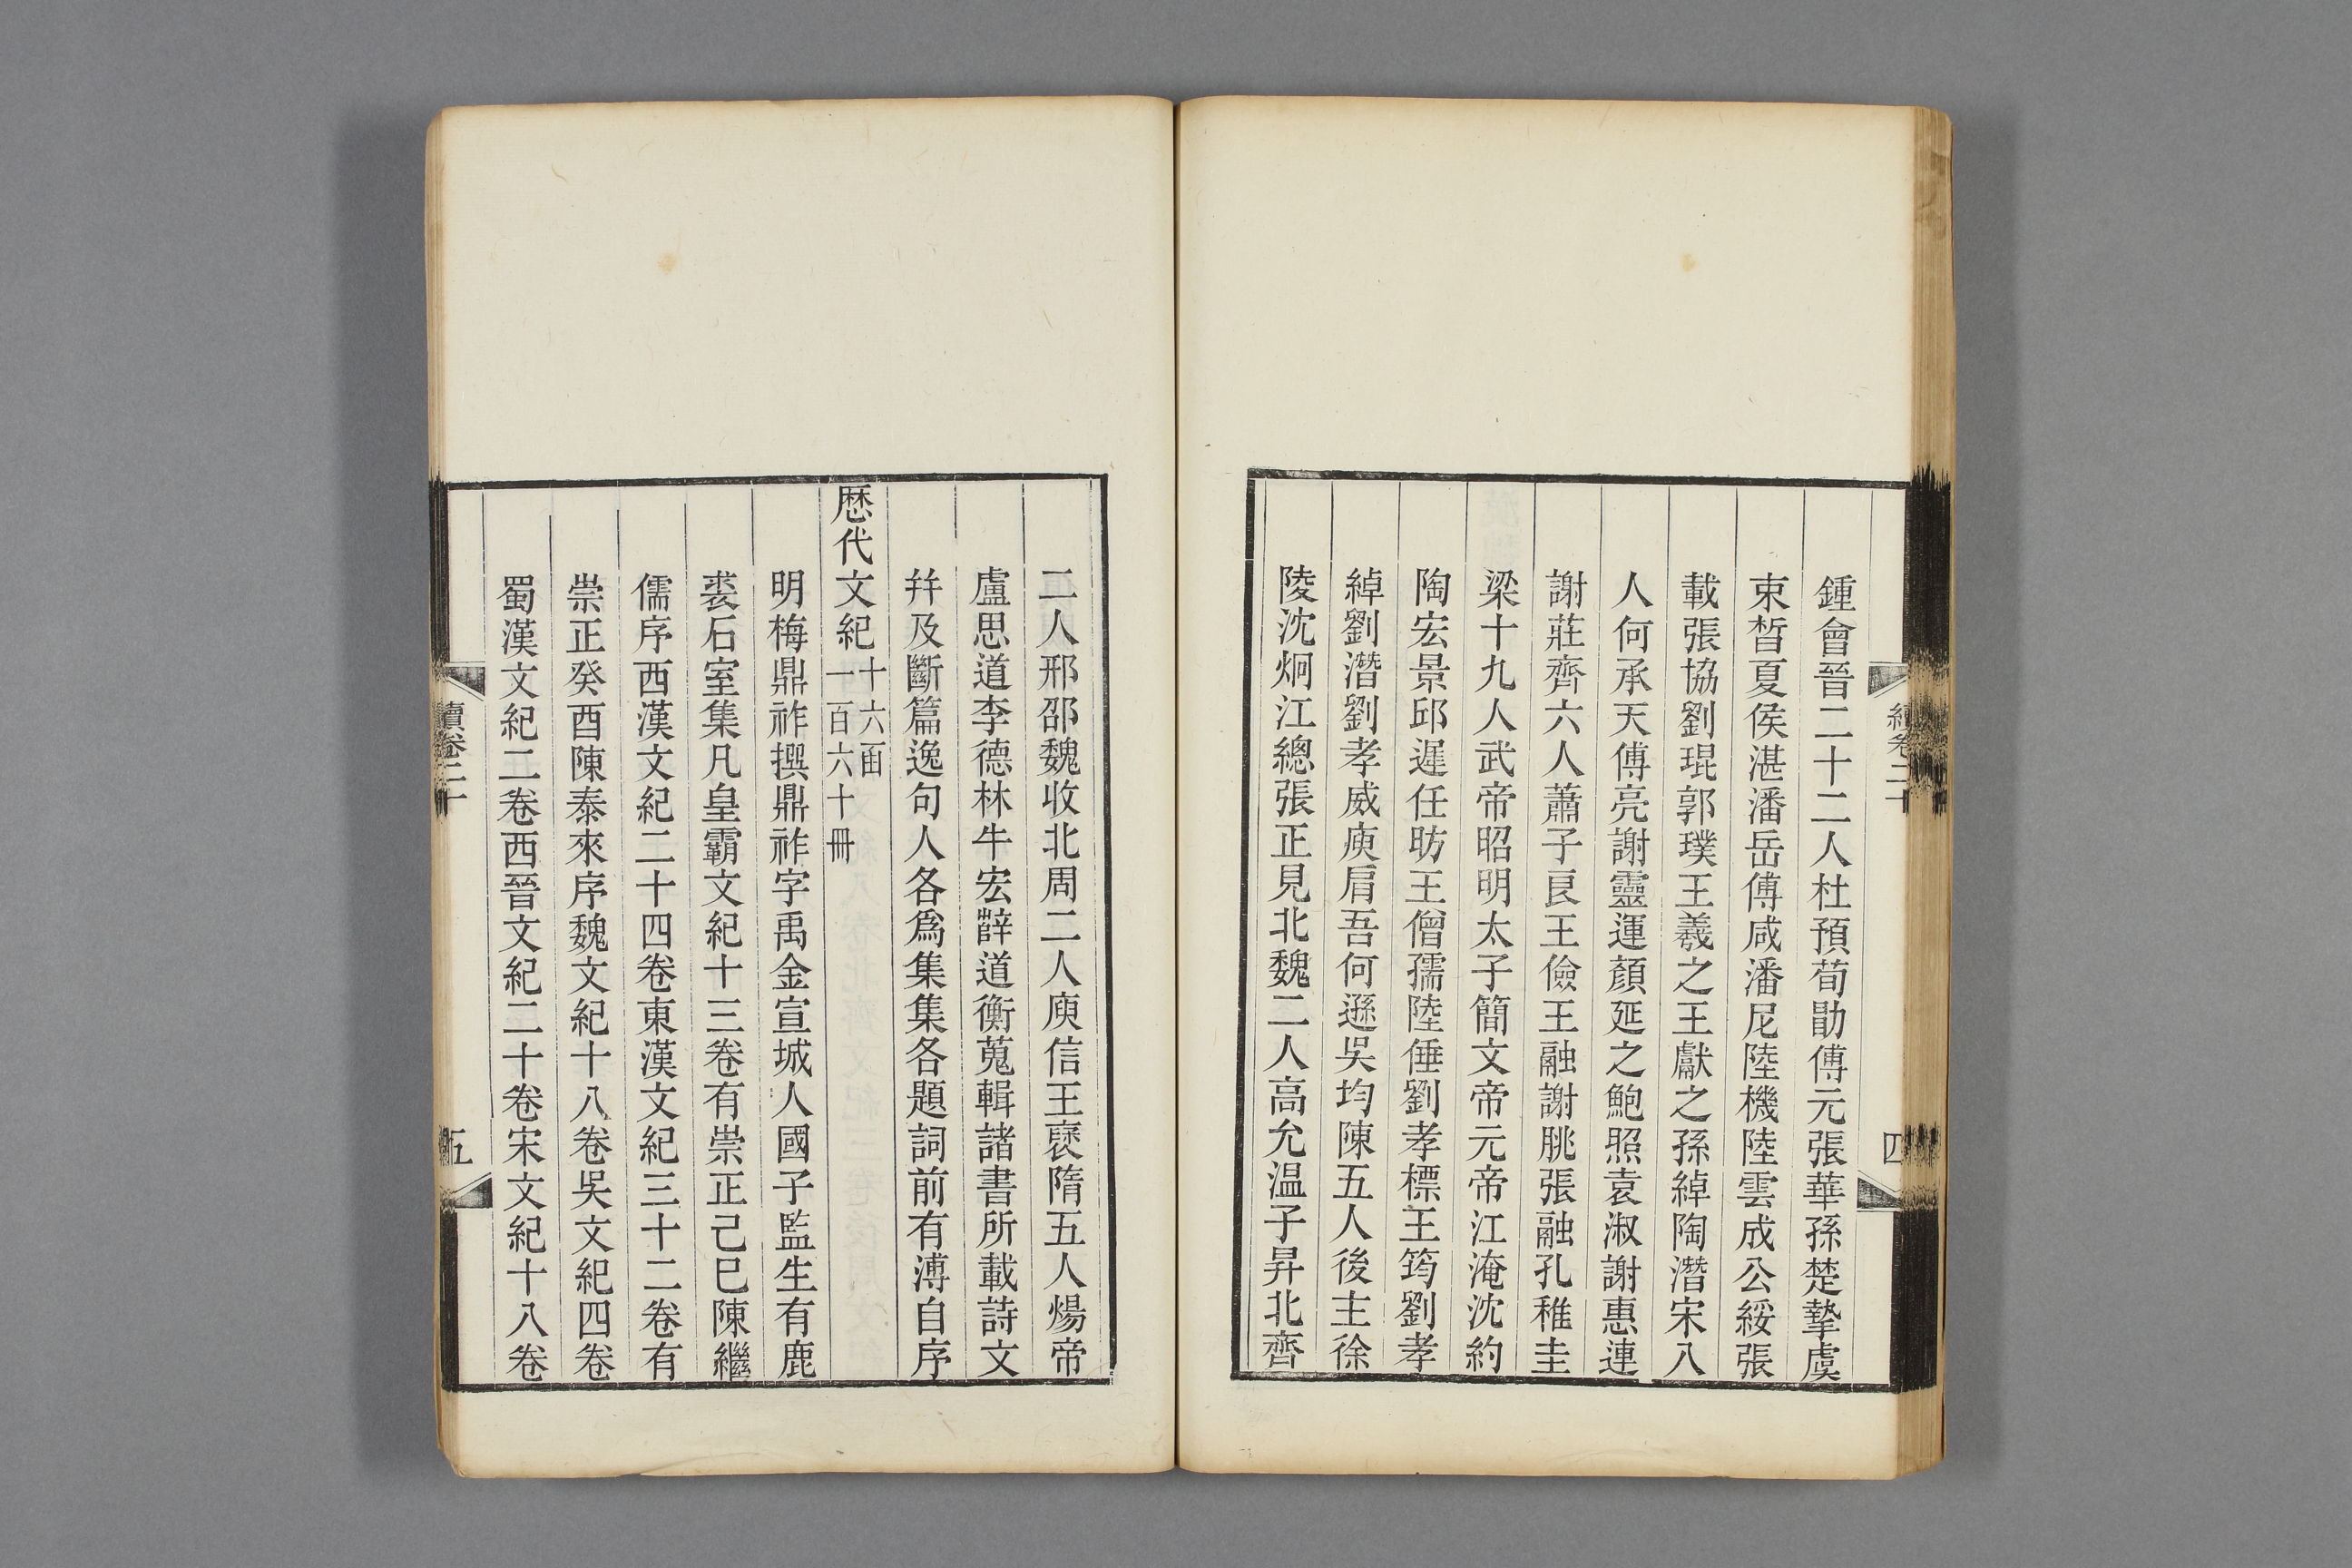 鍾會晉二十二人杜預荀勖傅元張華孫楚摯虞
束晳夏侯湛潘岳傅咸潘尼陸機陸雲成公綏張
載張協劉琨郭璞王羲之王獻之孫綽陶潛宋八
人何承天傅亮謝靈運顏延之鮑照袁淑謝惠連
謝莊齊六人蕭子良王儉王融謝朓張融孔稚圭
梁十九人武帝昭明太子簡文帝元帝江淹沈約
陶宏景邱遲任昉王僧孺陸倕劉孝標王筠劉孝
綽劉潛劉孝威庾肩吾何遜吳均陳五人後主徐
陵沈炯江總張正見北魏二人高允温子昇北齊
續卷二十
四
二人邢邵魏收北周二人庾信王褒隋五人煬帝
盧思道李德林牛宏薛道衡蒐輯諸書所載詩文
并及斷篇逸句人各爲集集各題詞前有溥自序
歴代文紀十六函一百六十冊
明梅鼎祚撰鼎祚字禹金宣城人國子監生有鹿
裘石室集凡皇霸文紀十三卷有崇正己巳陳繼
儒序西漢文紀二十四卷東漢文紀三十二卷有
崇正癸酉陳泰來序魏文紀十八卷吳文紀四卷
蜀漢文紀二卷西晉文紀二十卷宋文紀十八卷
續卷二十
五